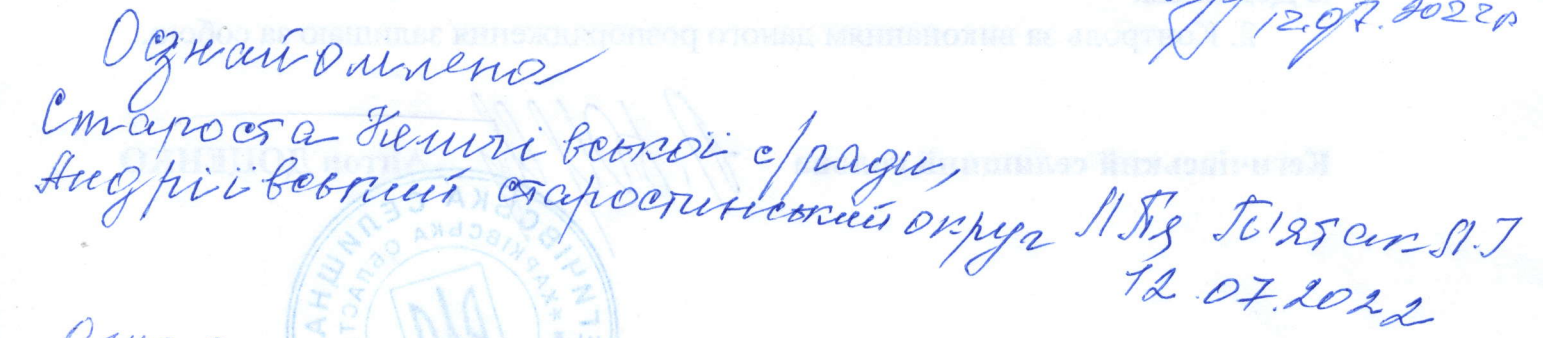 12.07.2022р
Ознайомлена
Староста Кегичівської с/ради,
Андріївський старостинський округ П'ятак Л.І
12.07.2022